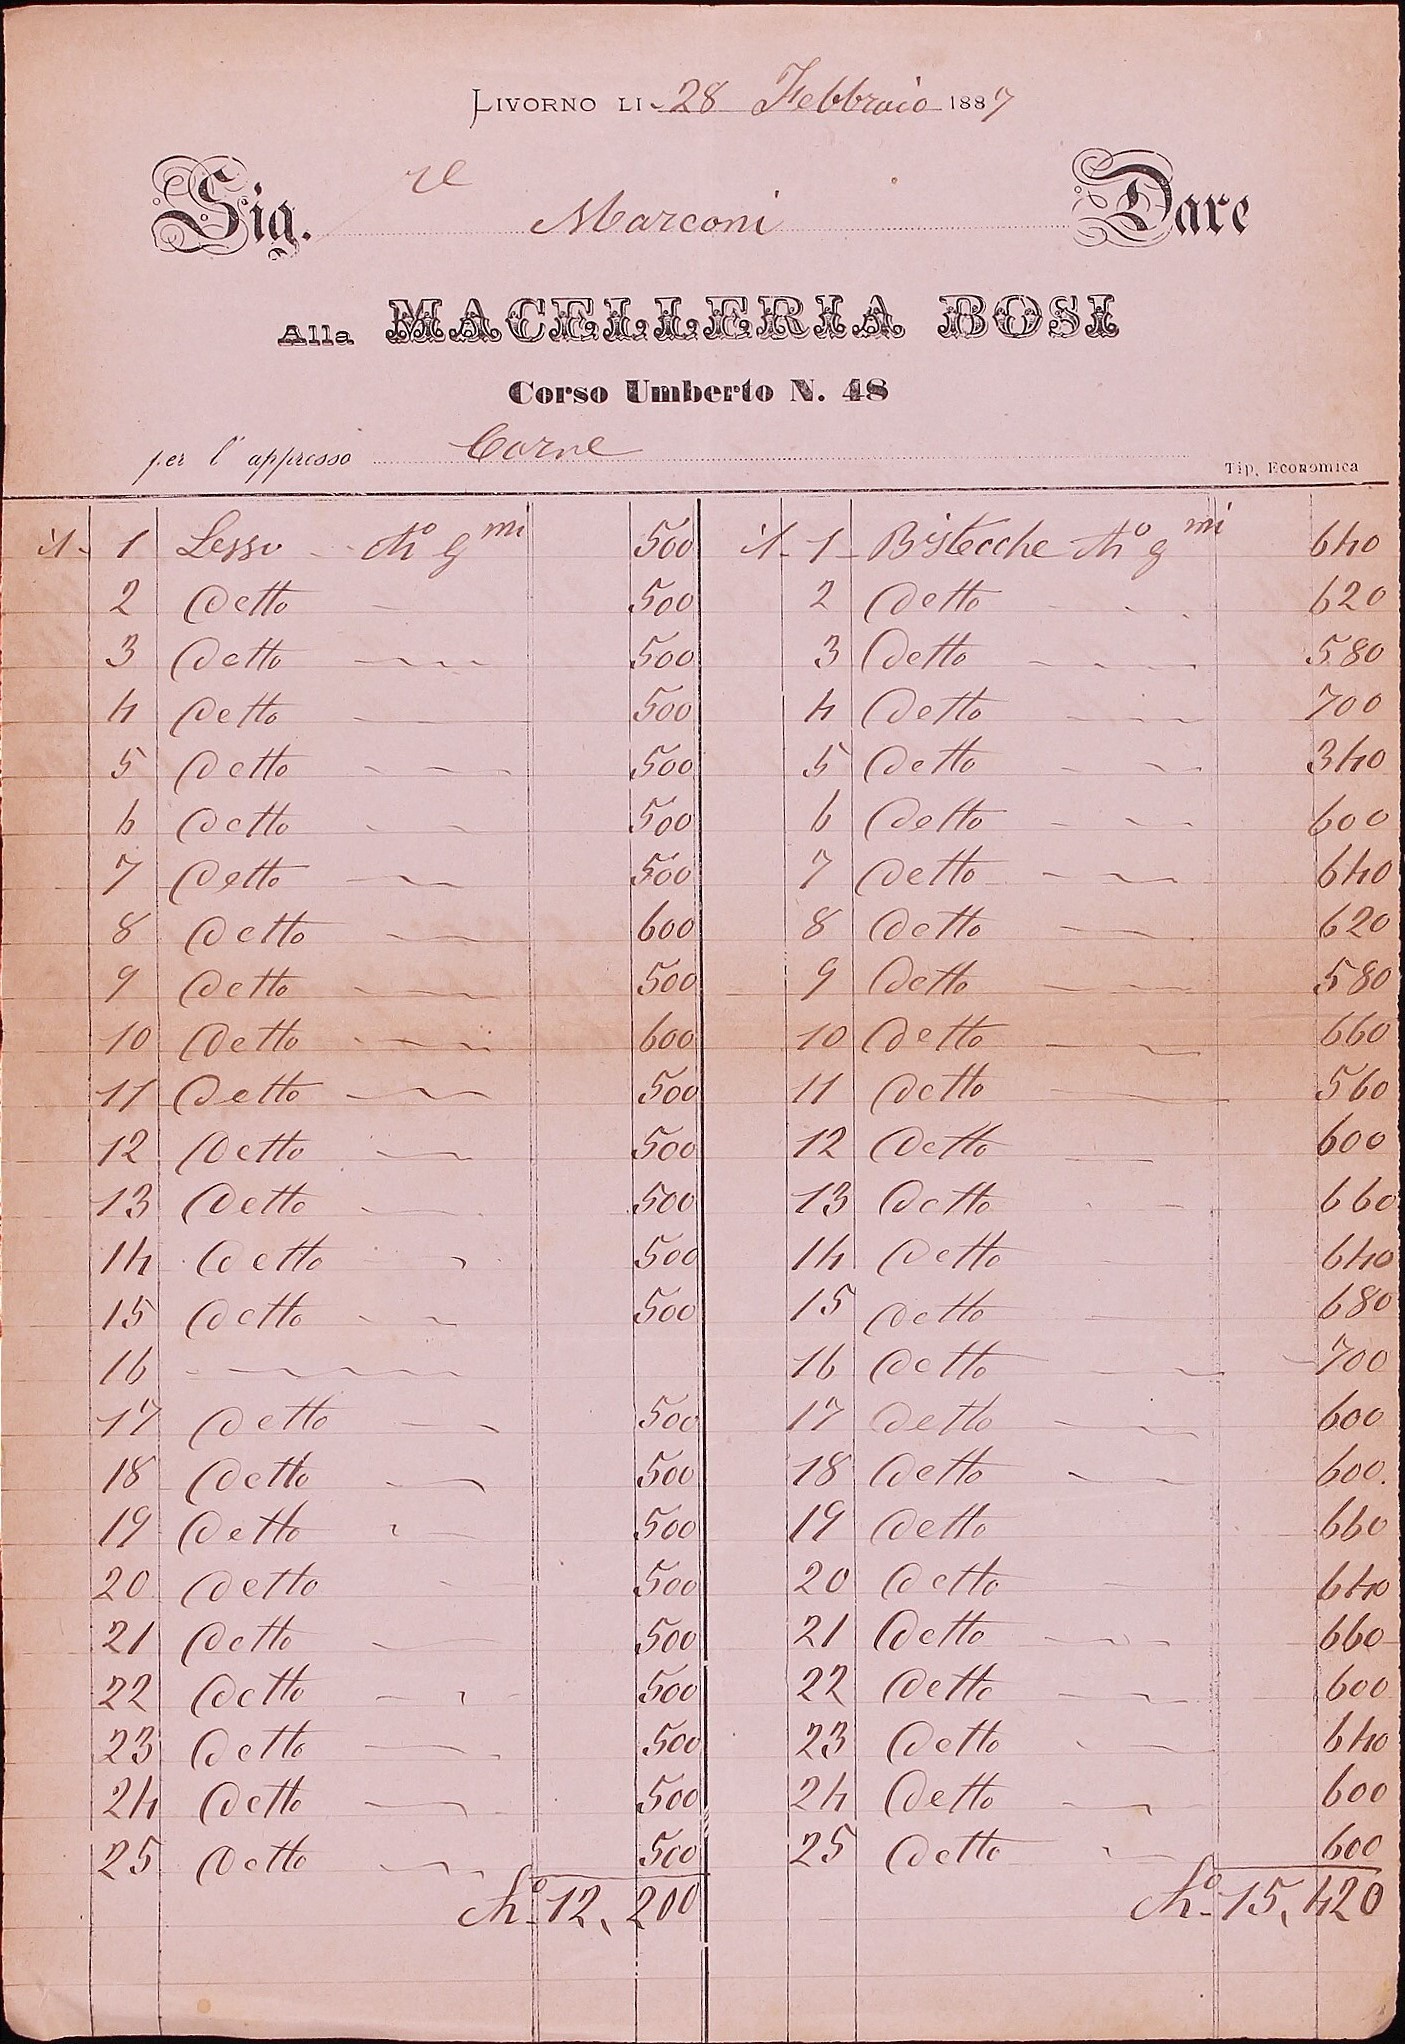 Livorno li 28 Febbraio 1887
Sig.re Marconi Dare
Alla MACELLERIA BOSI
Corso Umberto N. 48
per l'appresso Carne
Tip. Economica
il 1 Lesso Cho gmi 500 il 1 Bistecche Cho gmi 640
2 Detto 500 2 Detto 620
3 Detto 500 3 Detto 580
4 Detto 500 4 Detto 700
5 Detto 500 5 Detto 340
6 Detto 500 6 Detto 600
7 Detto 500 7 Detto 640
8 Detto 600 8 Detto 620
9 Detto 500 9 Detto 580
10 Detto 600 10 Detto 660
11 Detto 500 11 Detto 560
12 Detto 500 12 Detto 600
13 Detto 500 13 Detto 660
14 Detto 500 14 Detto 640
15 Detto 500 15 Detto 680
16 16 Detto 700
17 Detto 500 17 Detto 600
18 Detto 500 18 Detto 600
19 Detto 500 19 Detto 660
20 Detto 500 20 Detto 640
21 Detto 500 21 Detto 660
22 Detto 500 22 Detto 600
23 Detto 500 23 Detto 640
24 Detto 500 24 Detto 600
25 Detto 500 25 Detto 600
Cho 12,200 Cho 15,420